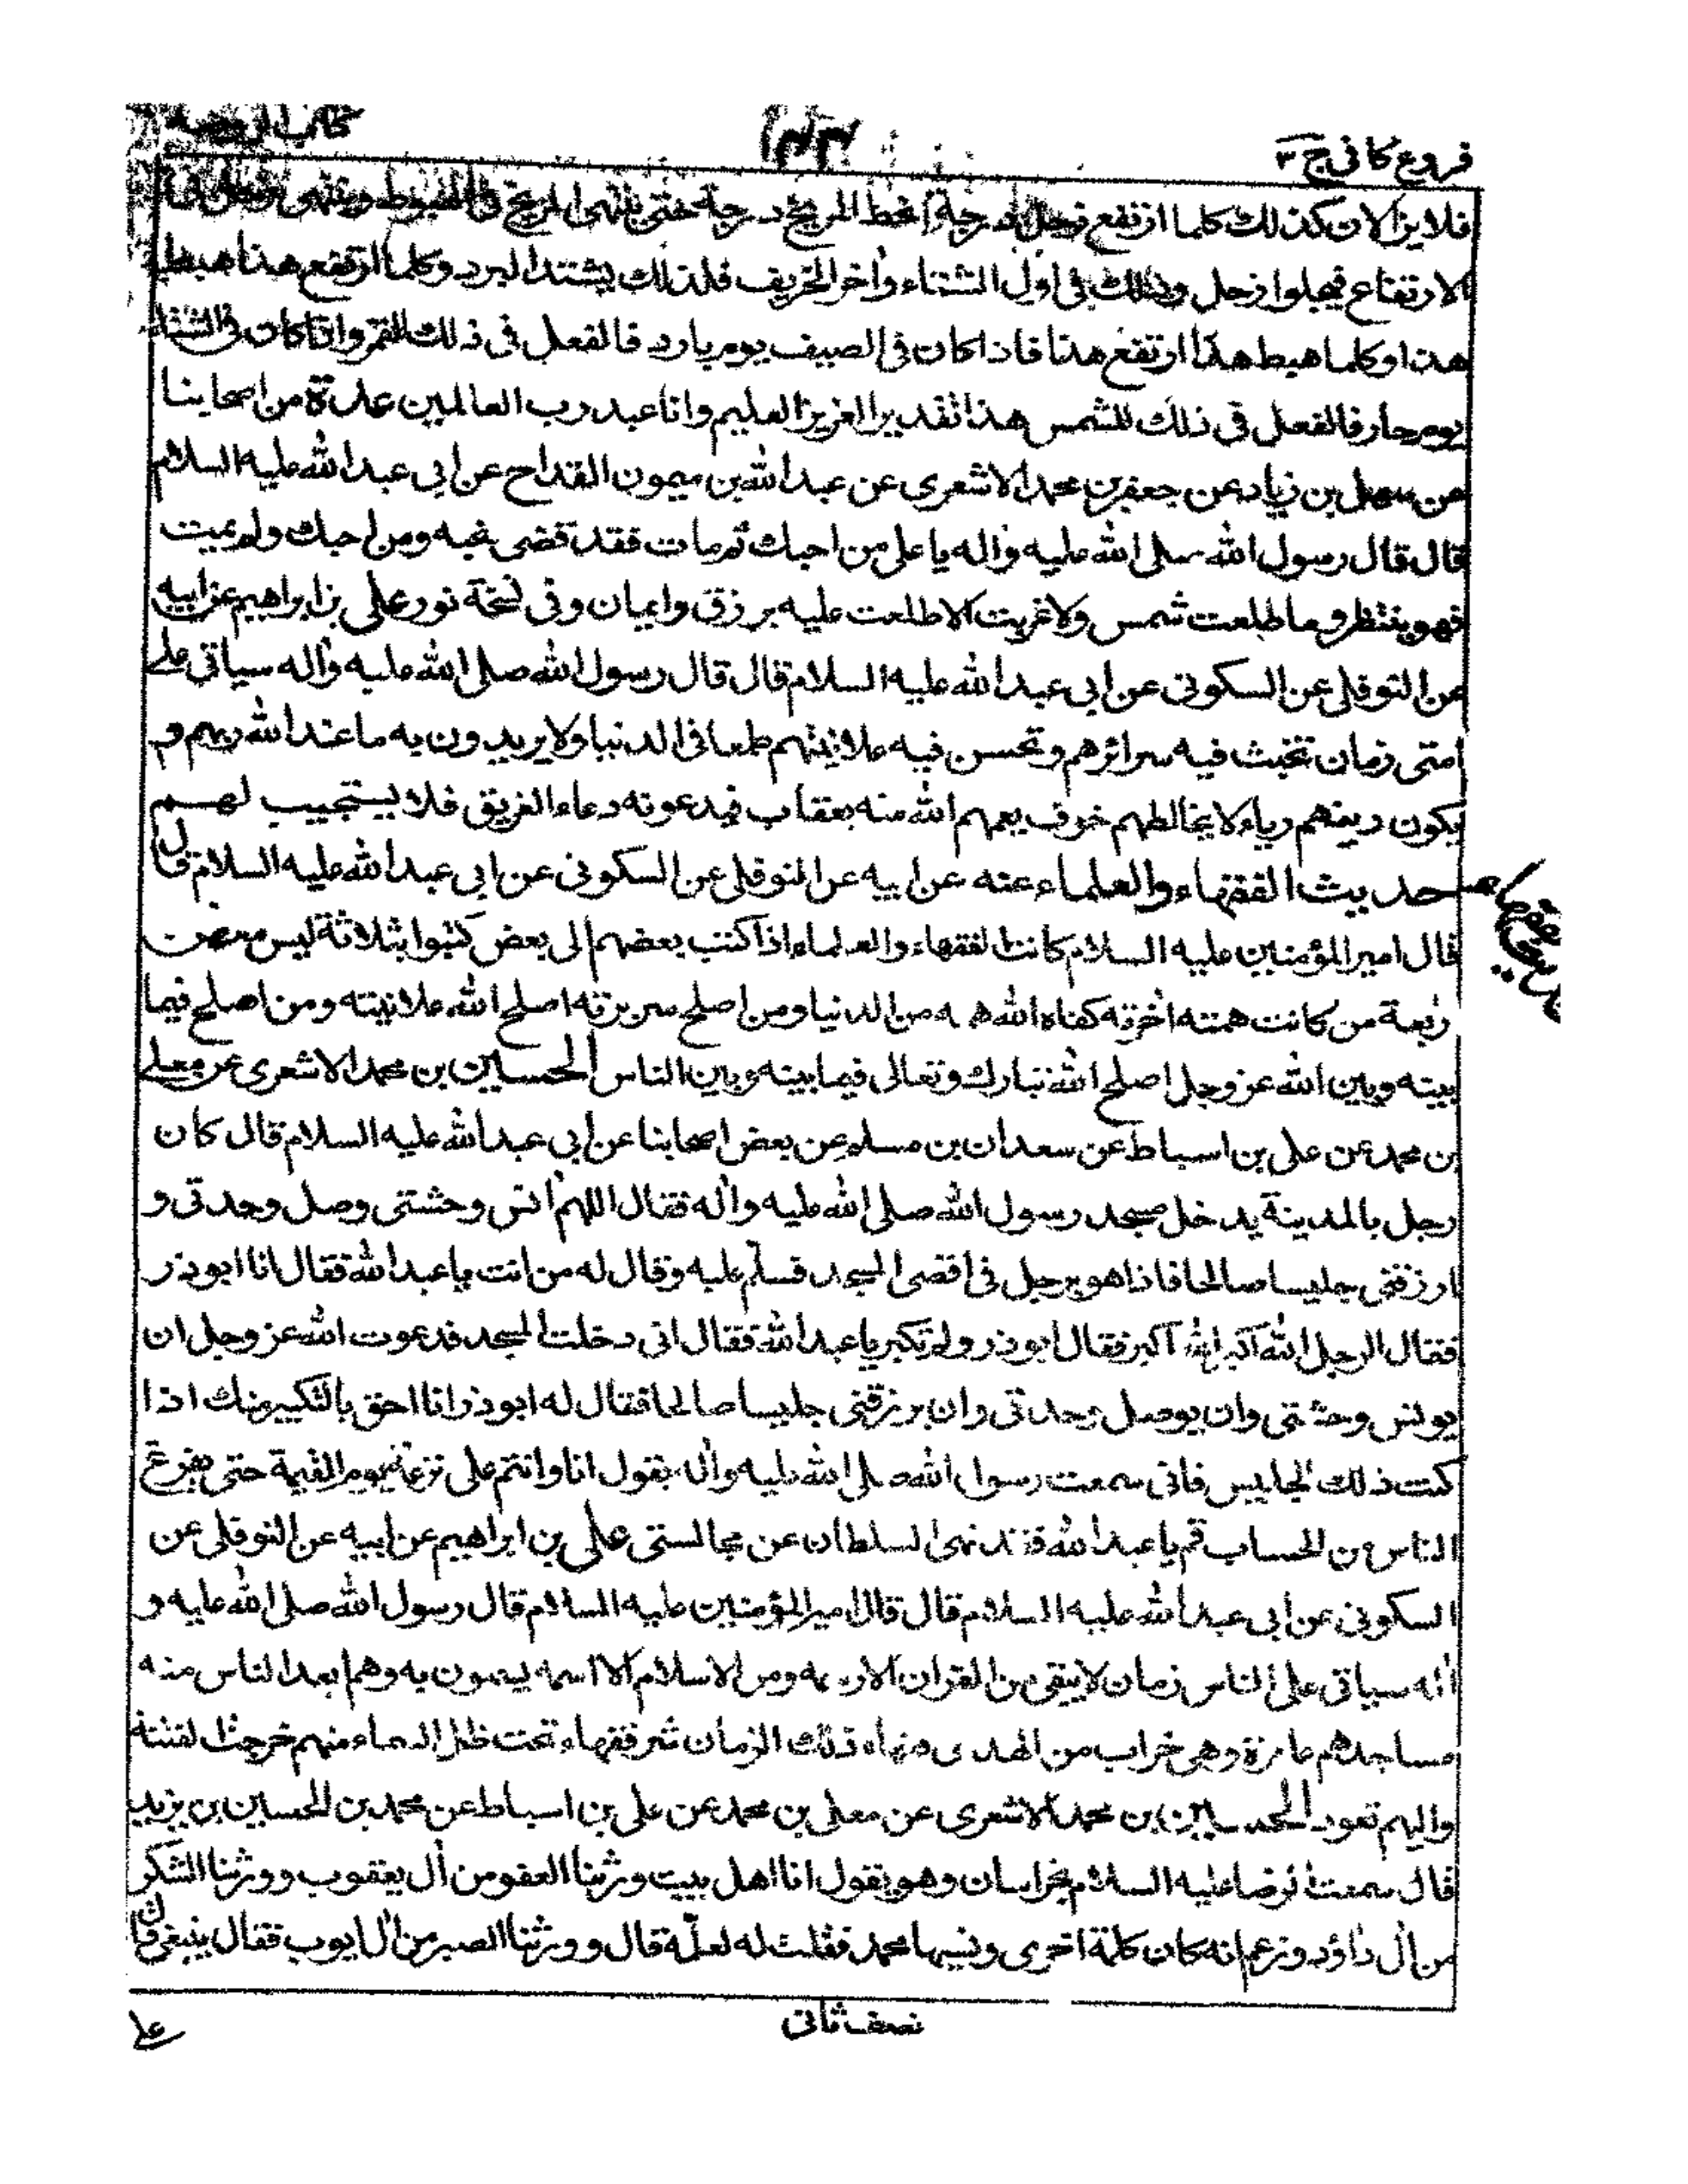 فروع كافى ج ٣
١٤٣
كتاب الروضة
فلايزالان كذلك كلما ارتفع زحل درجة انحط المريخ درجة حتى ينتهى المريخ فى الهبوط وينتهى زحل فى
الارتفاع فيجلوا زحل وذلك فى اول الشتاء وآخر الخريف فلذلك يشتد البرد وكلما ارتفع هذا هبط
هذا وكلما هبط هذا ارتفع هذا فاذا كان فى الصيف يوم بارد فالفعل فى ذلك للقمر واذا كان فى الشتاء
يوم حار فالفعل فى ذلك للشمس هذا تقدير العزيز العليم وانا عبد رب العالمين عدة من اصحابنا
عن سهل بن زياد عن جعفر بن محمد الاشعرى عن عبد الله بن ميمون القداح عن ابى عبد الله عليه السلام
قال قال رسول الله صلى الله عليه وآله يا على من احبك ثم مات فقد قضى نحبه ومن احبك ولم يمت
فهو ينتظر وما طلعت شمس ولا غربت الا طلعت عليه برزق وايمان وفى نسخة نور على بن ابراهيم عن ابيه
عن النوفلى عن السكونى عن ابى عبد الله عليه السلام قال قال رسول الله صلى الله عليه وآله سياتى على
امتى زمان تخبث فيه سرائرهم وتحسن فيه علانيتهم طمعا فى الدنيا ولا يريدون به ما عند الله ربهم و
يكون دينهم رياء لا يخالطهم خوف يعمهم الله منه بعقاب فيدعونه دعاء الغريق فلا يستجيب لهم
حديث الفقهاء والعلماء عنه عن ابيه عن النوفلى عن السكونى عن ابى عبد الله عليه السلام قال
قال امير المؤمنين عليه السلام كانت الفقهاء والعلماء اذا كتب بعضهم الى بعض كتبوا بثلاثة ليس معهن
رابعة من كانت همته آخرته كفاه الله همه من الدنيا ومن اصلح سريرته اصلح الله علانيته ومن اصلح فيما
بينه وبين الله عز وجل اصلح الله تبارك وتعالى فيما بينه وبين الناس الحسين بن محمد الاشعرى عن معلى
بن محمد عن على بن اسباط عن سعدان بن مسلم عن بعض اصحابنا عن ابى عبد الله عليه السلام قال كان
رجل بالمدينة يدخل مسجد رسول الله صلى الله عليه وآله فقال اللهم آنس وحشتى وصل وحدتى و
ارزقنى جليسا صالحا فاذا هو برجل فى اقصى المسجد فسلّم عليه وقال له من انت يا عبد الله فقال انا ابوذر
فقال الرجل الله اكبر الله اكبر فقال ابوذر ولم تكبر يا عبد الله فقال انى دخلت المسجد فدعوت الله عز وجل ان
يونس وحشتى وان يوصل وحدتى وان يرزقنى جليسا صالحا فقال له ابوذر انا احق بالتكبير منك اذا
كنت ذلك الجليس فانى سمعت رسول الله صلى الله عليه وآله يقول انا وانتم على ترعة يوم القيمة حتى يفرغ
الناس من الحساب قم يا عبد الله فقد نهى السلطان عن مجالستى على بن ابراهيم عن ابيه عن النوفلى عن
السكونى عن ابى عبد الله عليه السلام قال قال امير المؤمنين عليه السلام قال رسول الله صلى الله عليه و
آله سياتى على الناس زمان لا يبقى من القران الا رسمه ومن الاسلام الا اسمه يسمون به وهم ابعد الناس منه
مساجدهم عامرة وهى خراب من الهدى فقهاء ذلك الزمان شر فقهاء تحت ظل السماء منهم خرجت الفتنة
واليهم تعود الحسين بن محمد الاشعرى عن معلى بن محمد عن على بن اسباط عن محمد بن الحسين بن يزيد
قال سمعت الرضا عليه السلام بخراسان وهو يقول انا اهل بيت ورثنا العفو من آل يعقوب وورثنا الشكر
من آل داؤد وزعم انه كان كلمة اخرى ونسيها محمد فقلت له لعلّه قال وورثنا الصبر من آل ايوب فقال ينبغى قال
نصف ثانى
على